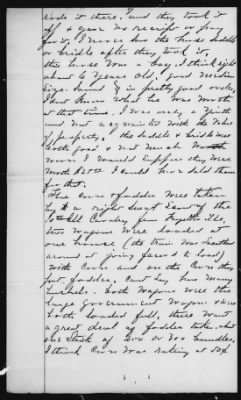 rode it there, and they took it
off & gave no receipt or pay
for it, I never saw the horse saddle
or bridle after they took it,
this horse was a bay, I think right
about 6 years old, good medium
size. sound & in pretty good order,
I dont know what he was worth
at that time. I was only a youth
and not familiar with the value
of property, the saddle & bridle were
both good & not much
worn I would suppose they were
worth $25.00 I could have sold them
for that.
The corn & fodder were taken
by the
6th Ill Cavalry from
two wagons were loaded at
our house (the train was scattered
around at going farms to load)
with corn and on the corn they
put fodder, cant say how many
bushels. both wagons were the
large government wagons & were
both loaded full, there went
a great deal of fodder
one stack of 200 or 300 bundles,
I think corn was selling at 50¢